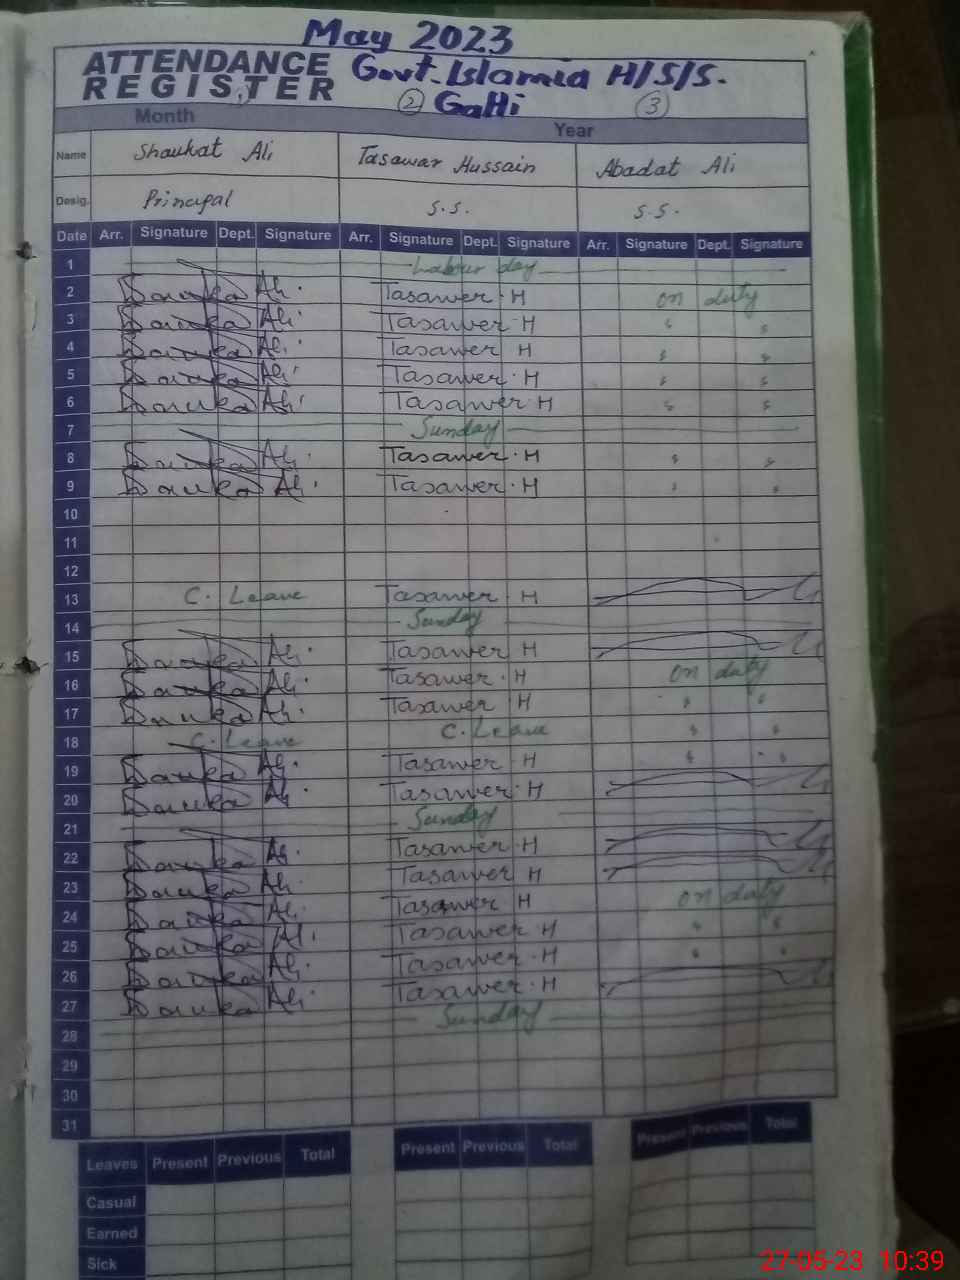 May 2023
ATTENDANCE REGISTER Govt. Islamia H/S/S.
② Gatti ③
Month Year
Name Shaukat Ali Tasawar Hussain Abadat Ali
Desig. Principal S.S. S.S.
Date Arr. Signature Dept. Signature Arr. Signature Dept. Signature Arr. Signature Dept. Signature
1 Labour day
2 Ali Tasawer.H on duty
3 Ali Tasawer.H
4 Ali Tasawer H
5 Ali Tasawer.H
6 Ali Tasawer H
7 Sunday
8 Ali Tasawer.H
9 Ali Tasawer.H
10
11
12
13 C. Leave Tasawer H
14 Sunday
15 Ali Tasawer H
16 Ali Tasawer.H on duty
17 Ali Tasawer H
18 C. Leave C. Leave
19 Ali Tasawer.H
20 Ali Tasawer.H
21 Sunday
22 Ali Tasawer.H
23 Ali Tasawer H
24 Ali Tasawer H on duty
25 Ali Tasawer.H
26 Ali Tasawer.H
27 Ali Tasawer.H
28 Sunday
29
30
31
Leaves Present Previous Total Present Previous Total Present Previous Total
Casual
Earned
Sick
27-05-23 10:39